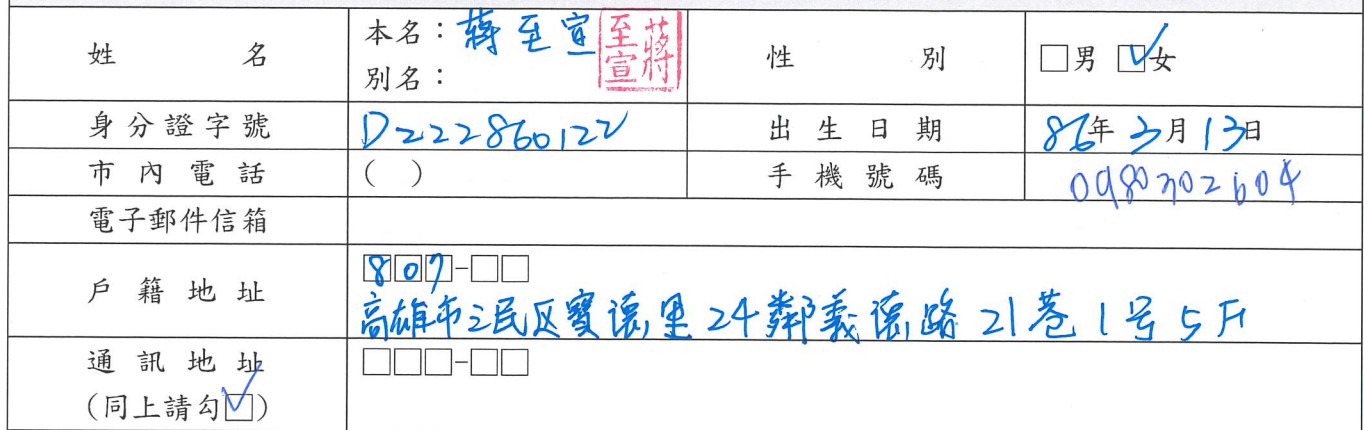 姓名 本名：蔣至宣 至宣蔣 性別 □男 ☑女
別名：
身分證字號 D222860122 出生日期 86年3月13日
市內電話 ( ) 手機號碼 0980302604
電子郵件信箱
戶籍地址 807-□□
高雄市三民区寶德里24鄰義德路21巷1号5F
通訊地址 □□□-□□
(同上請勾☑)